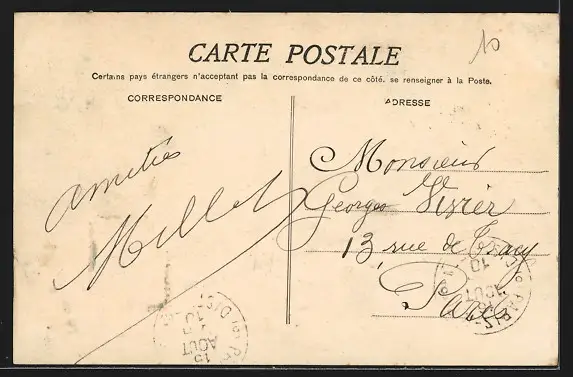 10
CARTE POSTALE
Certains pays étrangers n'acceptant pas la correspondance de ce côté, se renseigner à la Poste.
CORRESPONDANCE
ADRESSE
Amitiés
Millet
Monsieur
Georges
13 rue de Tracy
Paris
15
AOUT
10
PARIS
10
AOUT